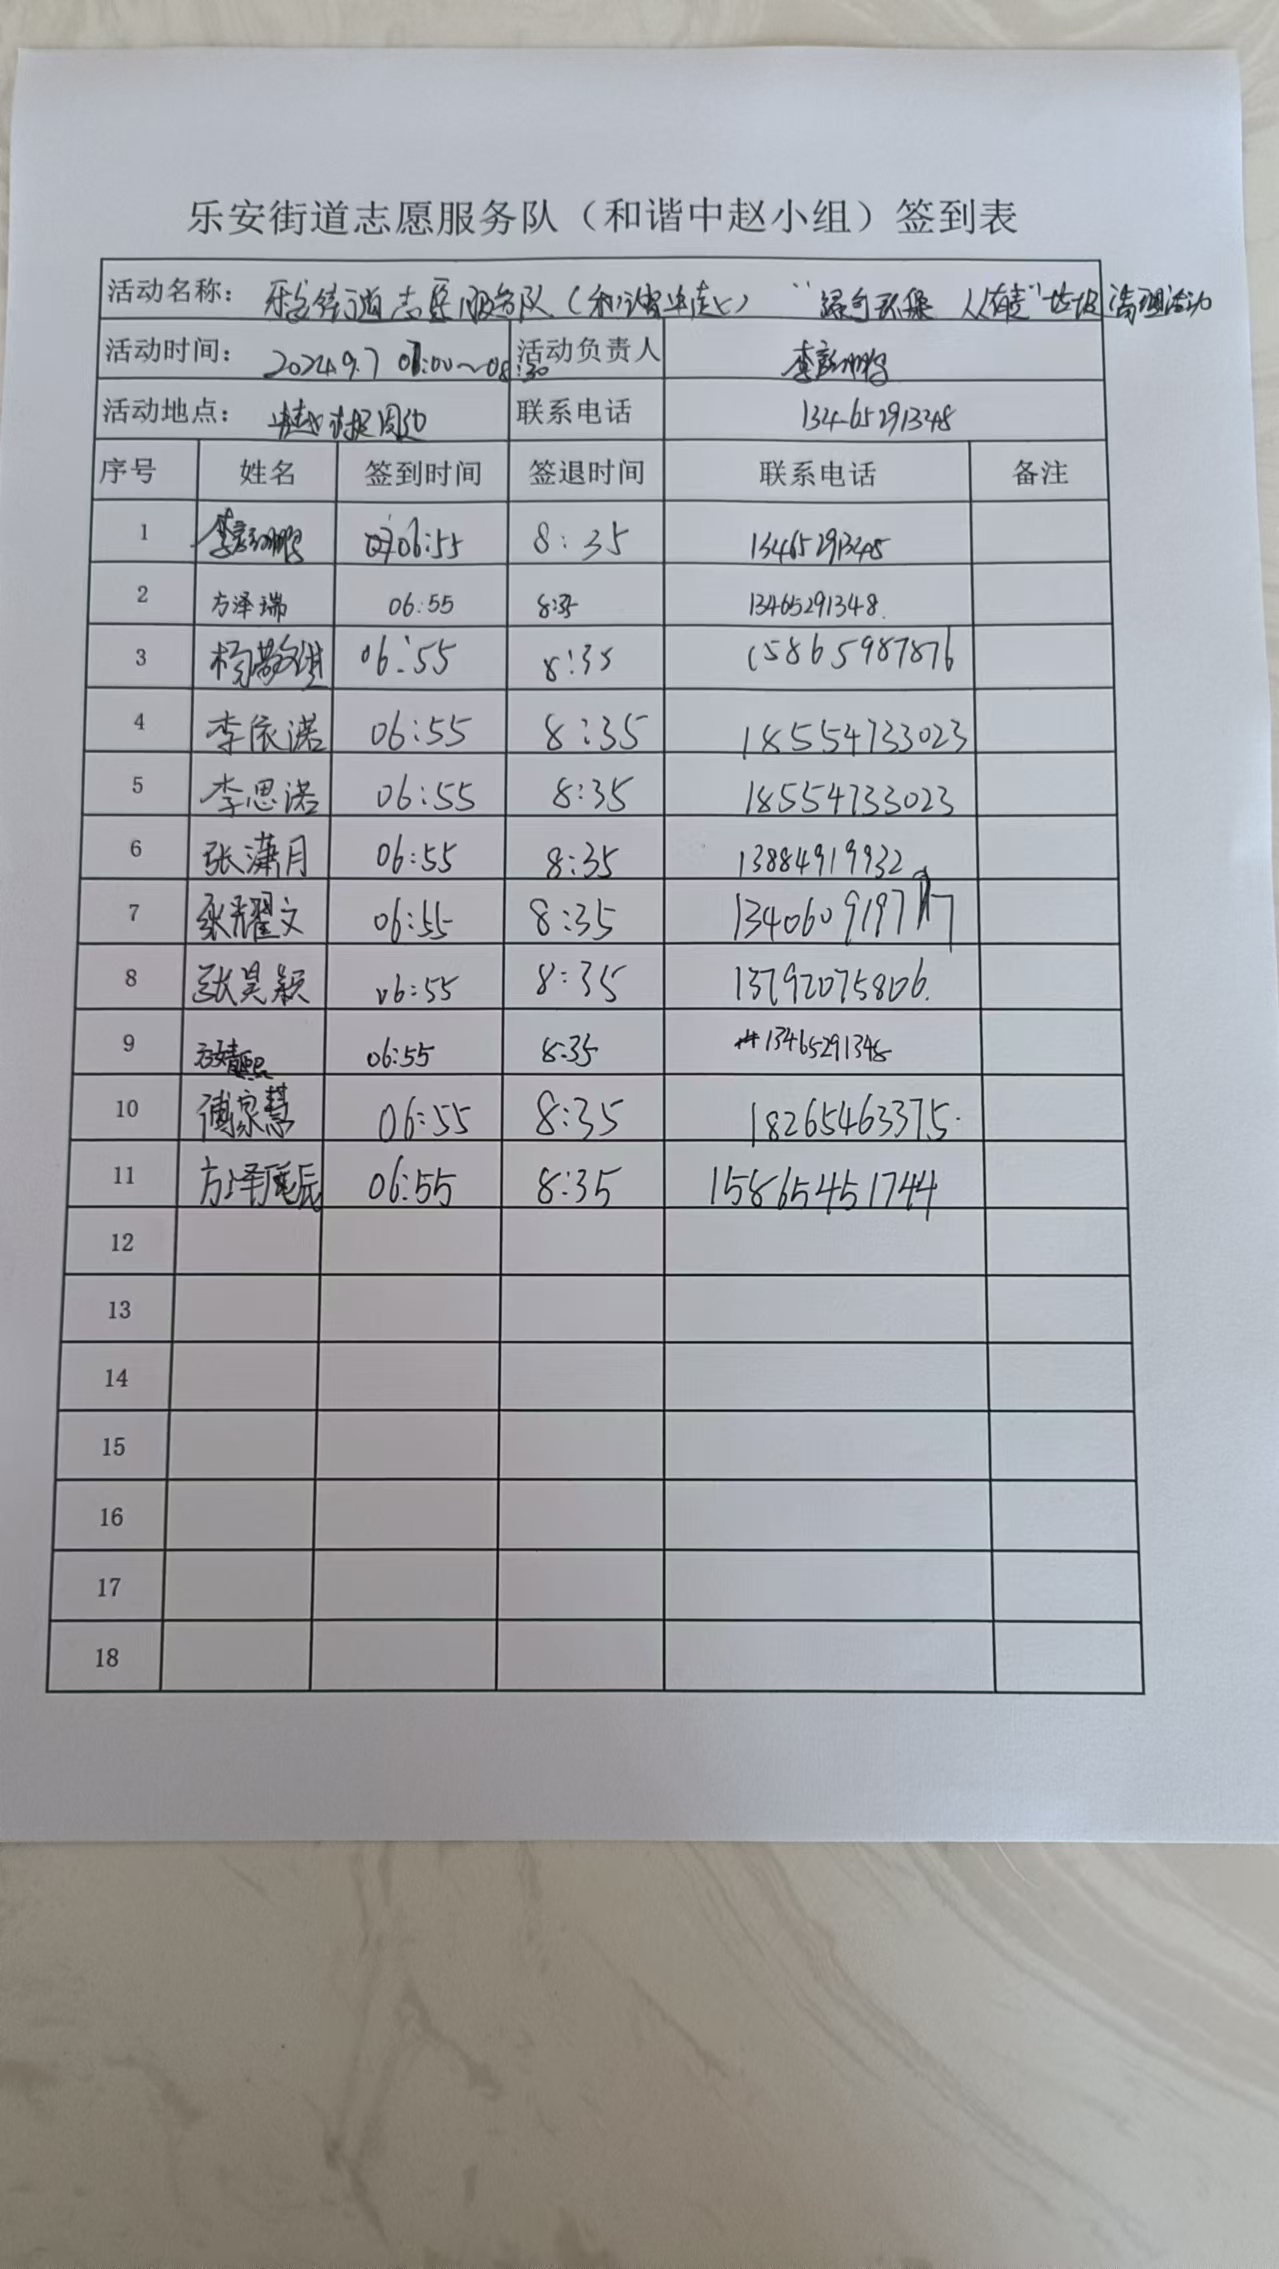 乐安街道志愿服务队（和谐中赵小组）签到表
活动名称： 乐安街道志愿服务队（和谐中赵） “绿色环保 人人有责”垃圾清理活动
活动时间： 2024.9.7 07:00～08:30 活动负责人 李彭鹏
活动地点： 中赵 周边 联系电话 13465291348
序号 姓名 签到时间 签退时间 联系电话 备注
1 李彭鹏 06:55 8:35 13465291348
2 方泽瑞 06:55 8:35 13465291348
3 杨敬琪 06:55 8:35 15865987876
4 李依诺 06:55 8:35 18554733023
5 李思诺 06:55 8:35 18554733023
6 张潇月 06:55 8:35 13884919932
7 张耀文 06:55 8:35 13406091977
8 张昊颖 06:55 8:35 13792075806
9 方婧熙 06:55 8:35 13465291348
10 傅家慧 06:55 8:35 18265463375
11 方泽辰 06:55 8:35 158654451744
12
13
14
15
16
17
18